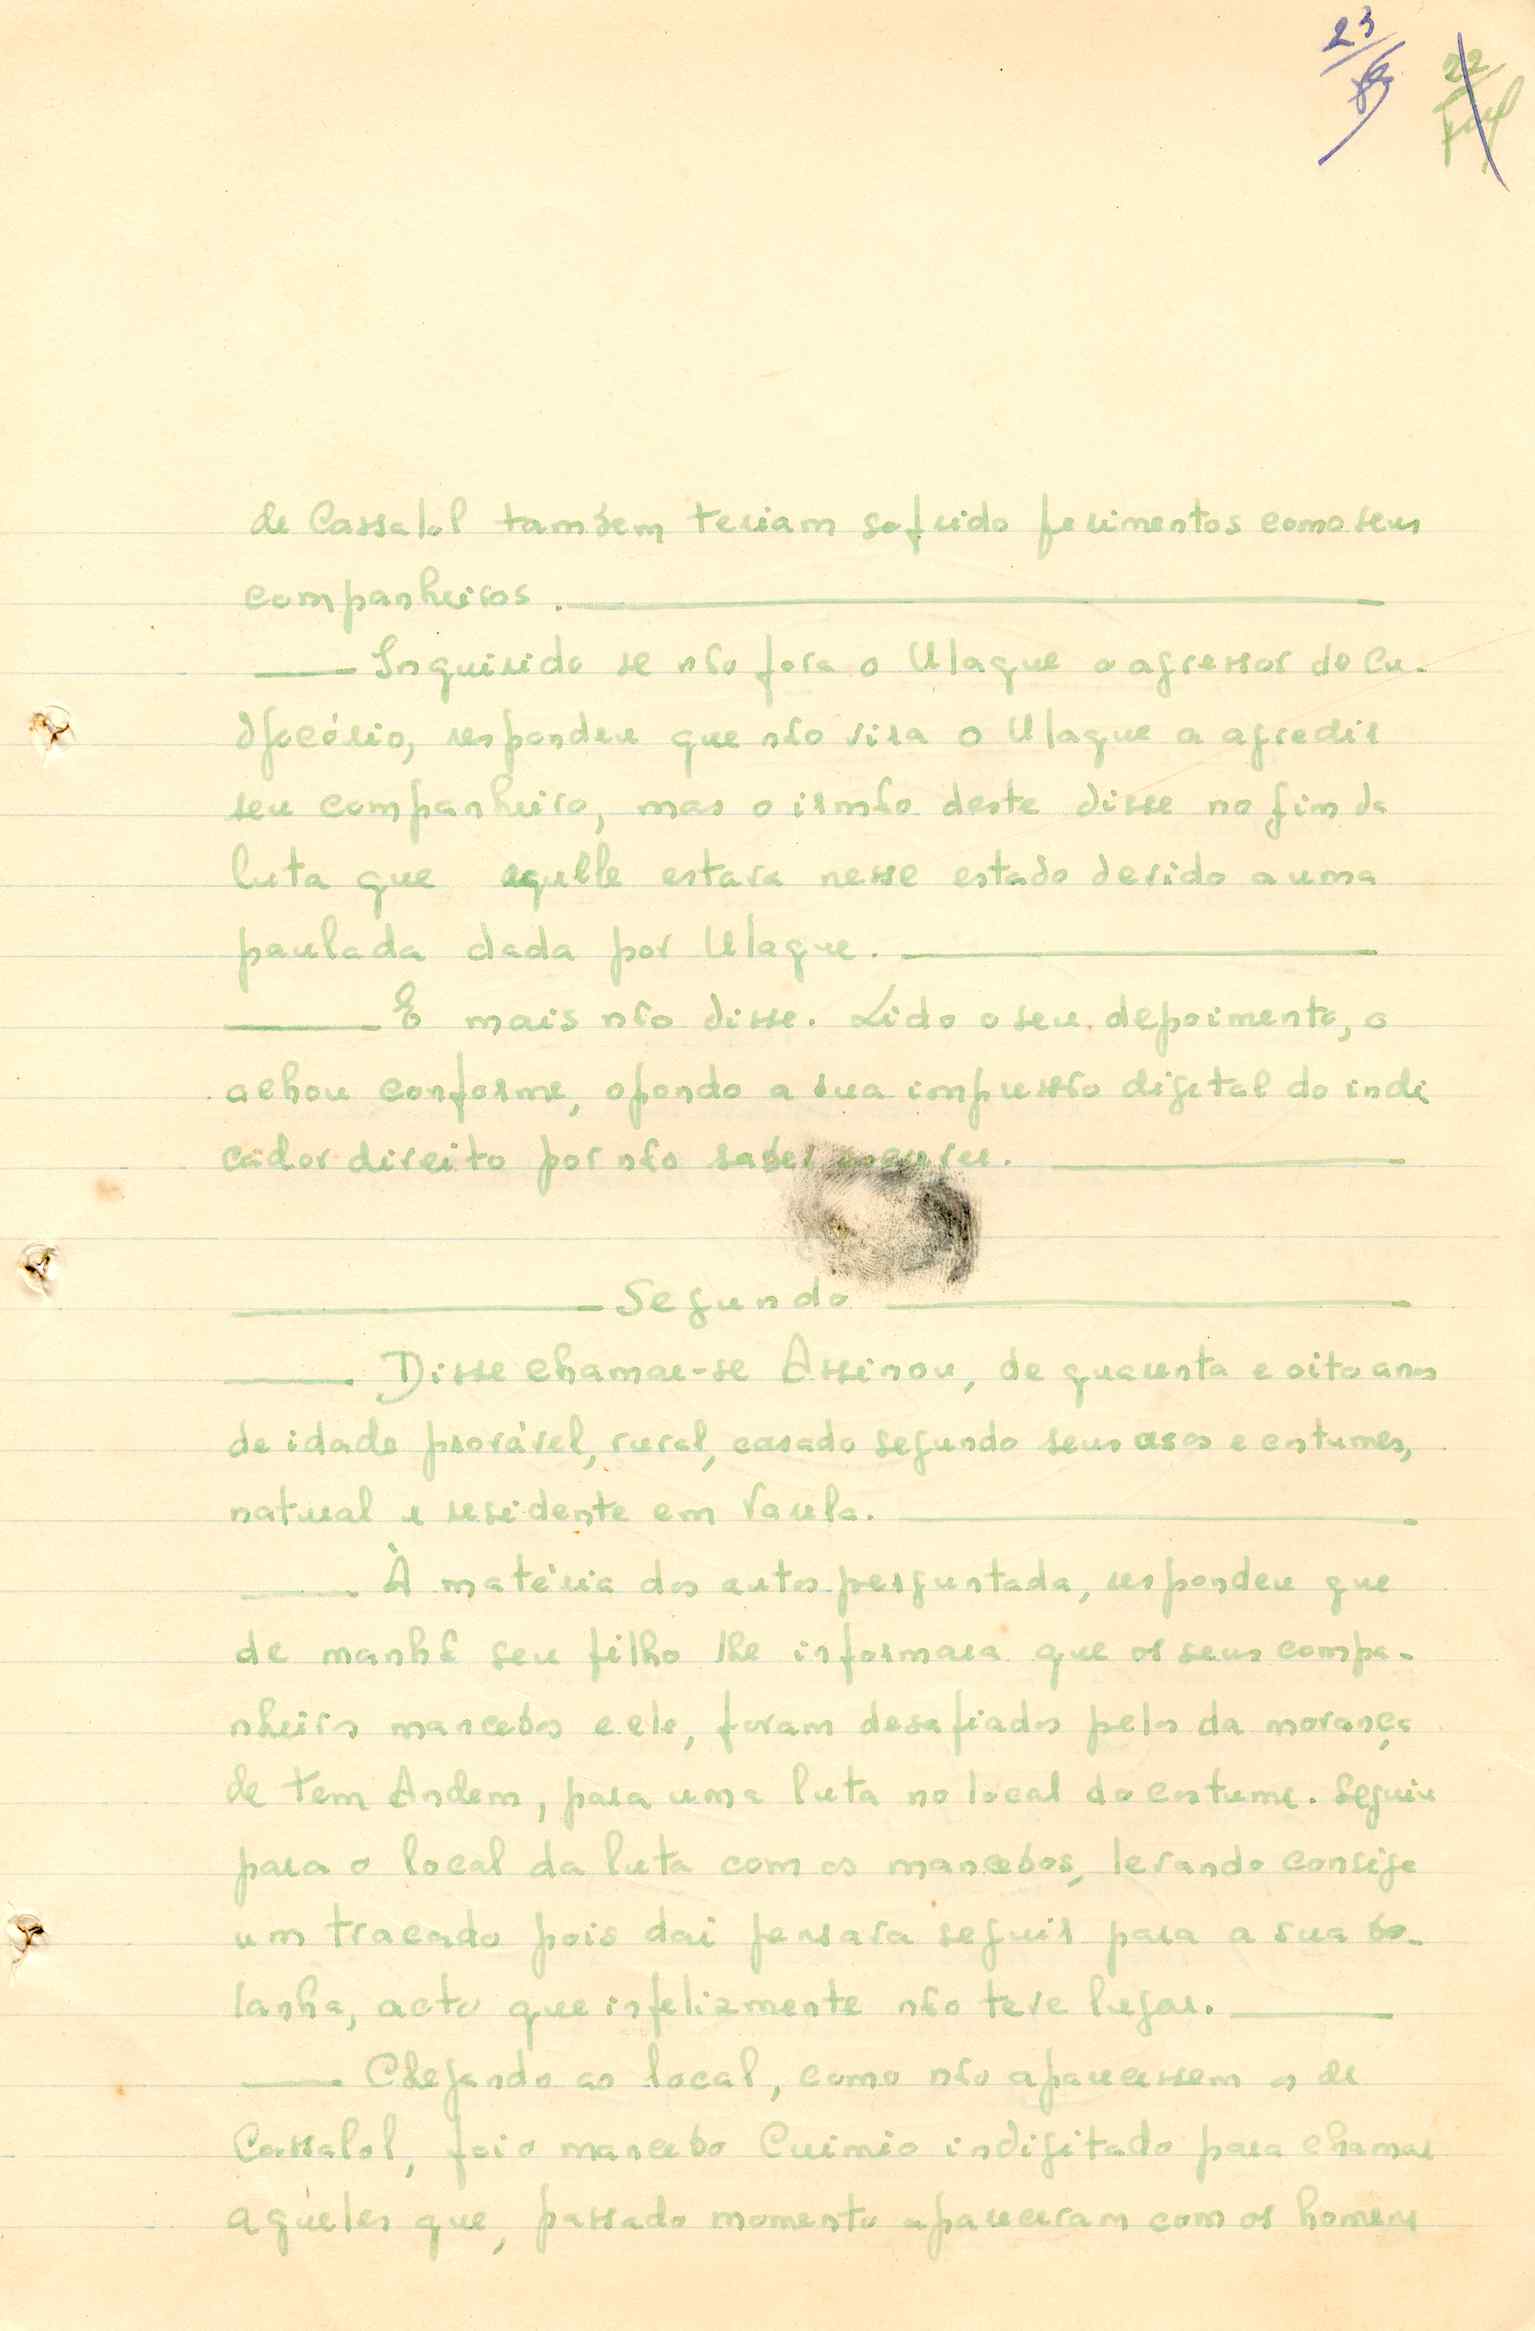 23
22
de Cassalol também teriam sofrido ferimentos como seus
companheiros.
Inquirido se não fora o Ulaque o agressor do
respondeu que não vira o Ulaque a agredir
seu companheiro, mas o irmão deste disse no fim da
luta que aquele estava nesse estado devido a uma
paulada dada por Ulaque.
E mais não disse. Lido o seu depoimento, o
achou conforme, opondo a sua impressão digital do indi
cador direito por não saber
Segundo
Disse chamar-se Assinou, de quarenta e oito anos
de idade provável, rural, casado segundo seus usos e costumes,
natural e residente em Varela.
À matéria dos autos perguntada, respondeu que
de manhã seu filho lhe informara que os seus compa-
nheiros mancebos e ele, foram desafiados pelos da morança
de tem Andem, para uma luta no local do costume. Seguiu
para o local da luta com os mancebos, levando consigo
um traçado pois dai pensava seguir para a sua bo-
lanha, acto que infelizmente não teve lugar.
Chegando ao local, como não aparecessem os de
Cassalol, foi o mancebo Cuimio indigitado para chamar
aqueles que, passado momento apareceram com os homens